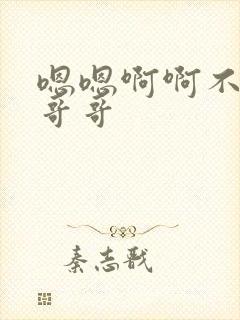 嗯嗯啊啊不
哥哥
秦志戬